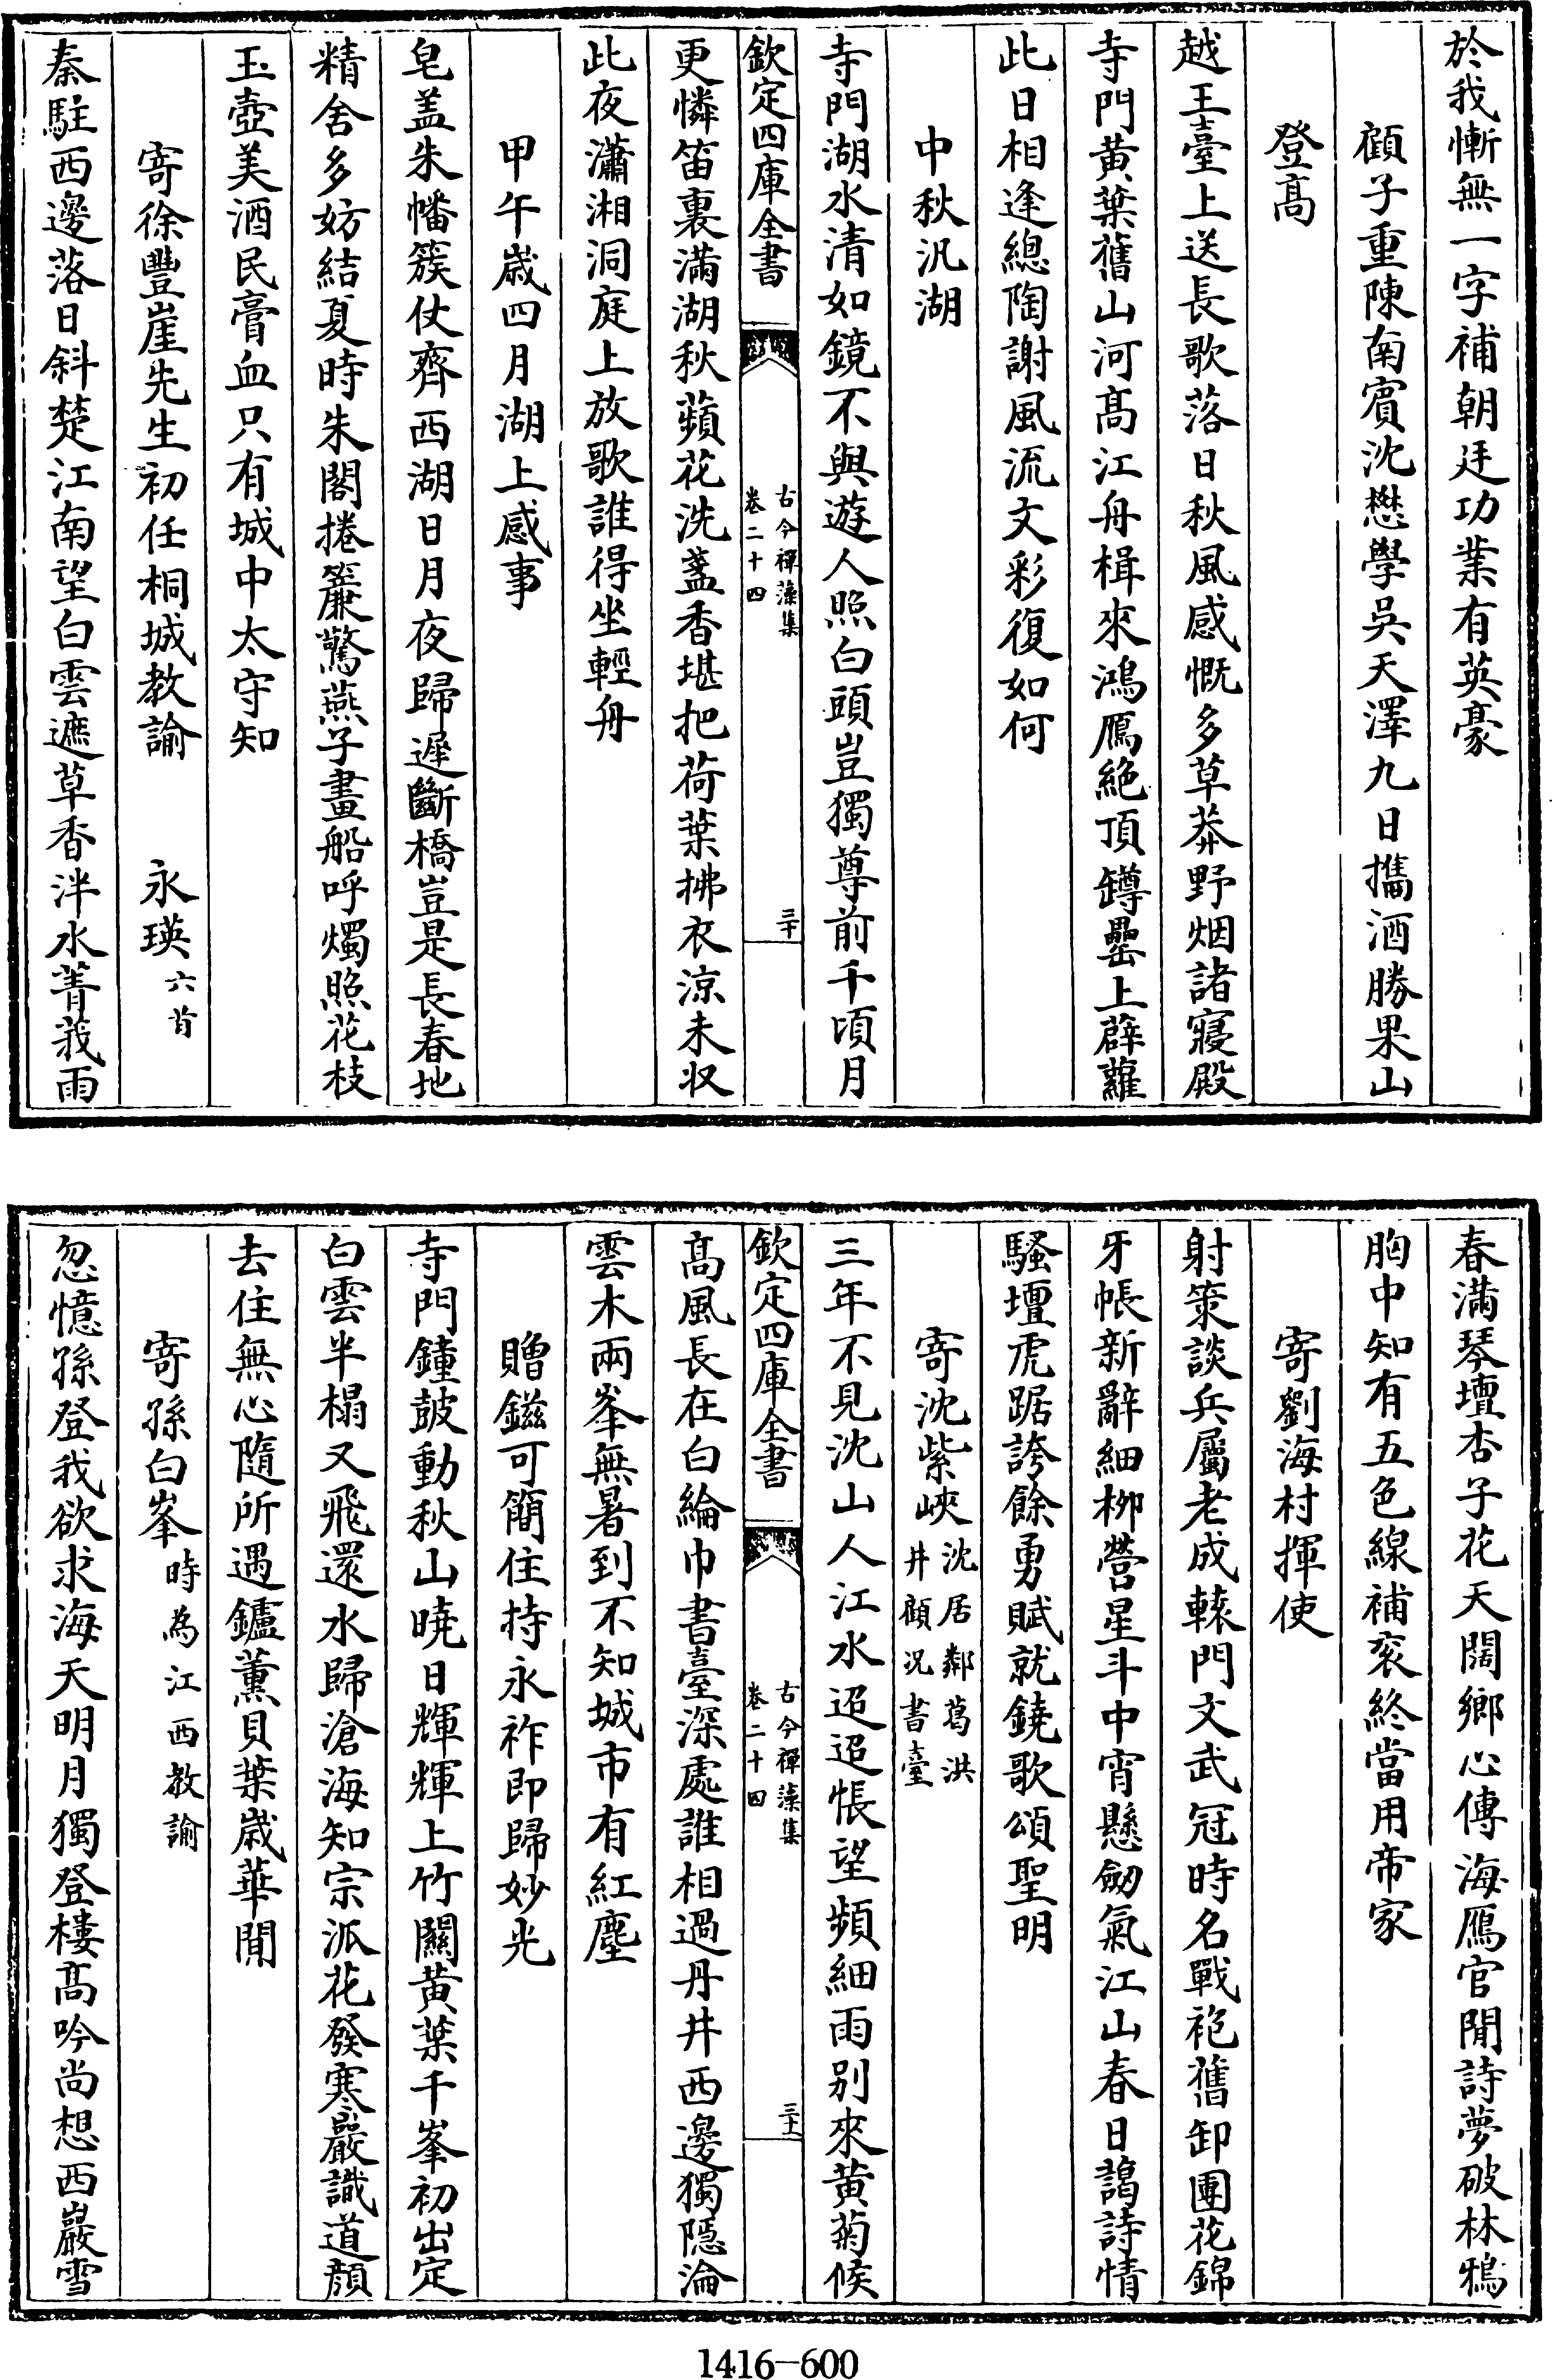 於我慚無一字補朝廷功業有英豪
顧子重陳南賓沈懋學吳天澤九日攜酒勝果山
登高
越王臺上送長歌落日秋風感慨多草莽野烟諸寢殿
寺門黃葉舊山河高江舟楫來鴻鴈絶頂罇罍上薜蘿
此日相逢總陶謝風流文彩復如何
中秋汎湖
寺門湖水清如鏡不與遊人照白頭豈獨尊前千頃月
欽定四庫全書
古今禪藻集
卷二十四
三十
更憐笛裏滿湖秋蘋花洗盞香堪把荷葉拂衣涼未收
此夜瀟湘洞庭上放歌誰得坐輕舟
甲午歲四月湖上感事
皂盖朱幡簇仗齊西湖日月夜歸遲斷橋豈是長春地
精舍多妨結夏時朱閣捲簾驚燕子畫船呼燭照花枝
玉壺美酒民膏血只有城中太守知
寄徐豐崖先生初任桐城教諭 永瑛六首
秦駐西邊落日斜楚江南望白雲遮草香泮水菁莪雨
春滿琴壇杏子花天闊鄉心傳海鴈官閒詩夢破林鴉
胸中知有五色線補衮終當用帝家
寄劉海村揮使
射策談兵屬老成轅門文武冠時名戰袍舊卸團花錦
牙帳新辭細柳營星斗中宵懸劒氣江山春日藹詩情
騷壇虎踞誇餘勇賦就鐃歌頌聖明
寄沈紫峽沈居鄰葛洪井顧况書臺
三年不見沈山人江水迢迢悵望頻細雨别來黃菊候
欽定四庫全書
古今禪藻集
卷二十四
三十一
高風長在白綸巾書臺深處誰相過丹井西邊獨隱淪
雲木兩峯無暑到不知城市有紅塵
贈鎡可簡住持永祚即歸妙光
寺門鐘鼓動秋山曉日輝輝上竹關黃葉千峯初出定
白雲半榻又飛還水歸滄海知宗派花發寒巖識道顔
去住無心隨所遇鑪薰貝葉歲華閒
寄孫白峯時為江西教諭
忽憶孫登我欲求海天明月獨登樓高吟尚想西巖雪
1416-600